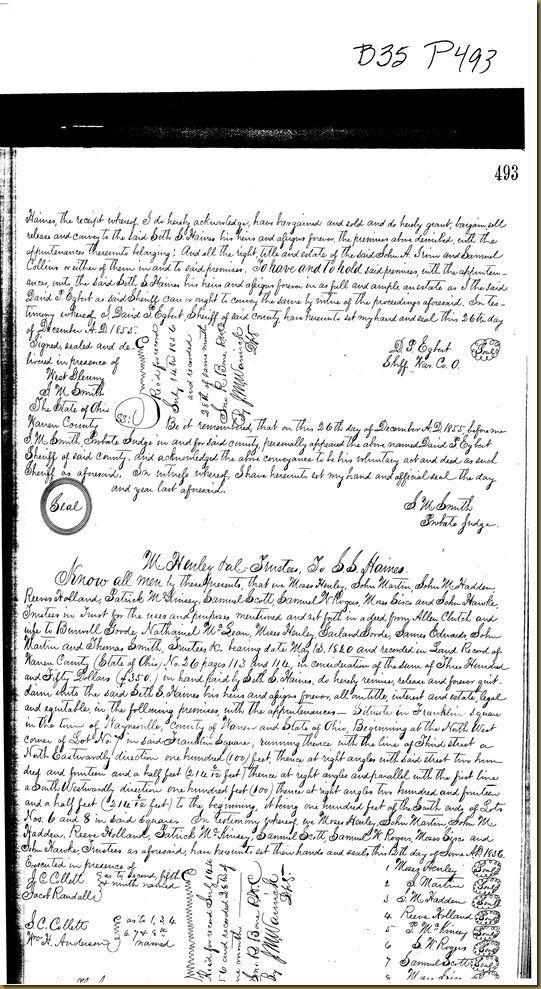 B35 P493
493
Haines, the receipt whereof I do hereby acknowledge, have bargained and sold and do hereby grant, bargain sell
release and convey to the said Seth S. Haines his heirs and assigns forever, the premises above described, with the
appurtenances thereunto belonging: And all the right, title and estate of the said John A. Irvin and Samuel
Collins or either of them in and to said premises. To have and to hold said premises, with the appurten-
ances, unto the said Seth S. Haines his heirs and assigns forever in as full and ample an estate as I the said
David P. Egbert as said Sheriff can or ought to convey the same by virtue of the proceedings aforesaid. In tes-
timony whereof, I, David P. Egbert, Sheriff of said county have hereunto set my hand and seal this 26th day
of December A.D. 1855.
Signed, sealed and de-
livered in presence of
J. M. Smith
D. P. Egbert Seal
Shiff War. Co. O.
Rec'd for record
July 14th 1856
and recorded
25th of same month
The State of Ohio
Warren County SS:
Be it remembered, that on this 26th day of December A.D. 1855, before me
J. M. Smith, Probate Judge in and for said county, personally appeared the above named David P. Egbert
Sheriff of said county, and acknowledged the above conveyance to be his voluntary act and deed as such
Sheriff as aforesaid. In witness whereof, I have hereunto set my hand and official seal the day
and year last aforesaid.
Seal
J. M. Smith
Probate Judge.
M Henley &al Trustees, To S. S. Haines.
Know all men by these presents, that we Moses Henley, John Martin, John M. Hadden,
Reeves Holland, Patrick McKinsey, Samuel Scott, Samuel W. Rogers, Moses Sisc and John Hawke,
Trustees in Trust for the uses and purposes mentioned and set forth in a deed from Allen Clutch and
wife to Burwell Goode, Nathaniel McLean, Moses Henley, Garland Goode, James Edwards, John
Martin and Thomas Smith, Trustees &c. bearing date May 13. 1820 and recorded in Land Record of
Warren County (State of Ohio) No. 26 pages 113 and 114, in consideration of the sum of Three Hundred
and Fifty Dollars ($350.) in hand paid by Seth S. Haines, do hereby remise, release and forever quit-
claim unto the said Seth S. Haines his heirs and assigns forever, all our title, interest and estate, legal
and equitable, in the following premises, with the appurtenances - Situate in Franklin Square
in the town of Waynesville, County of Warren and State of Ohio, Beginning at the North West
corner of Lot No. in said Franklin Square, running thence with the line of Third street a
North Eastwardly direction one hundred (100) feet, thence at right angles with said street two hun
dred and fourteen and a half feet (214 1/2 feet) thence at right angles and parallel with the first line
a South Westwardly direction one hundred feet (100) thence at right angles two hundred and fourteen
and a half feet (214 1/2 feet) to the beginning, it being one hundred feet of the South ends of Lots
Nos. 6 and 8 in said Square. In testimony whereof, we Moses Henley, John Martin, John M.
Hadden, Reeve Holland, Patrick McKinsey, Samuel Scott, Samuel W. Rogers, Moses Sisc and
John Hawke, Trustees as aforesaid, have hereunto set their hands and seals this 13th day of June A.D. 1856.
Executed in presence of
J. C. Collett as to second, fifth
Jacob Randall & ninth named
J. C. Collett as to 1, 3, 4
Wm. H. Anderson 6, 7 & 8th named
Rec'd for record July 14th
56 and recorded 25th of
same month
1 Moses Henley Seal
2 J. Martin Seal
3 J. M. Hadden Seal
4 Reeve Holland Seal
5 P. McKinsey Seal
6 S. W. Rogers Seal
7 Samuel Scott Seal
8 Moses Sisc